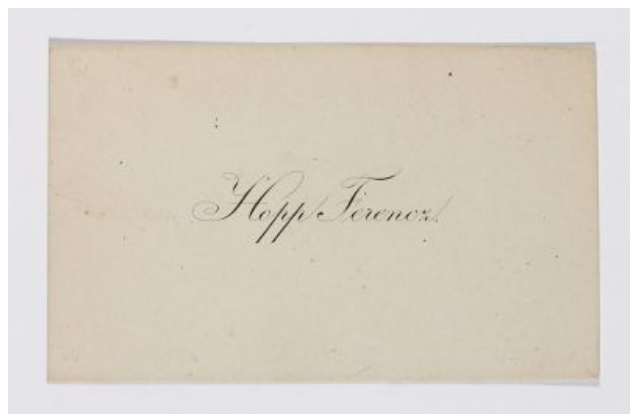 Hopp Ferencz.